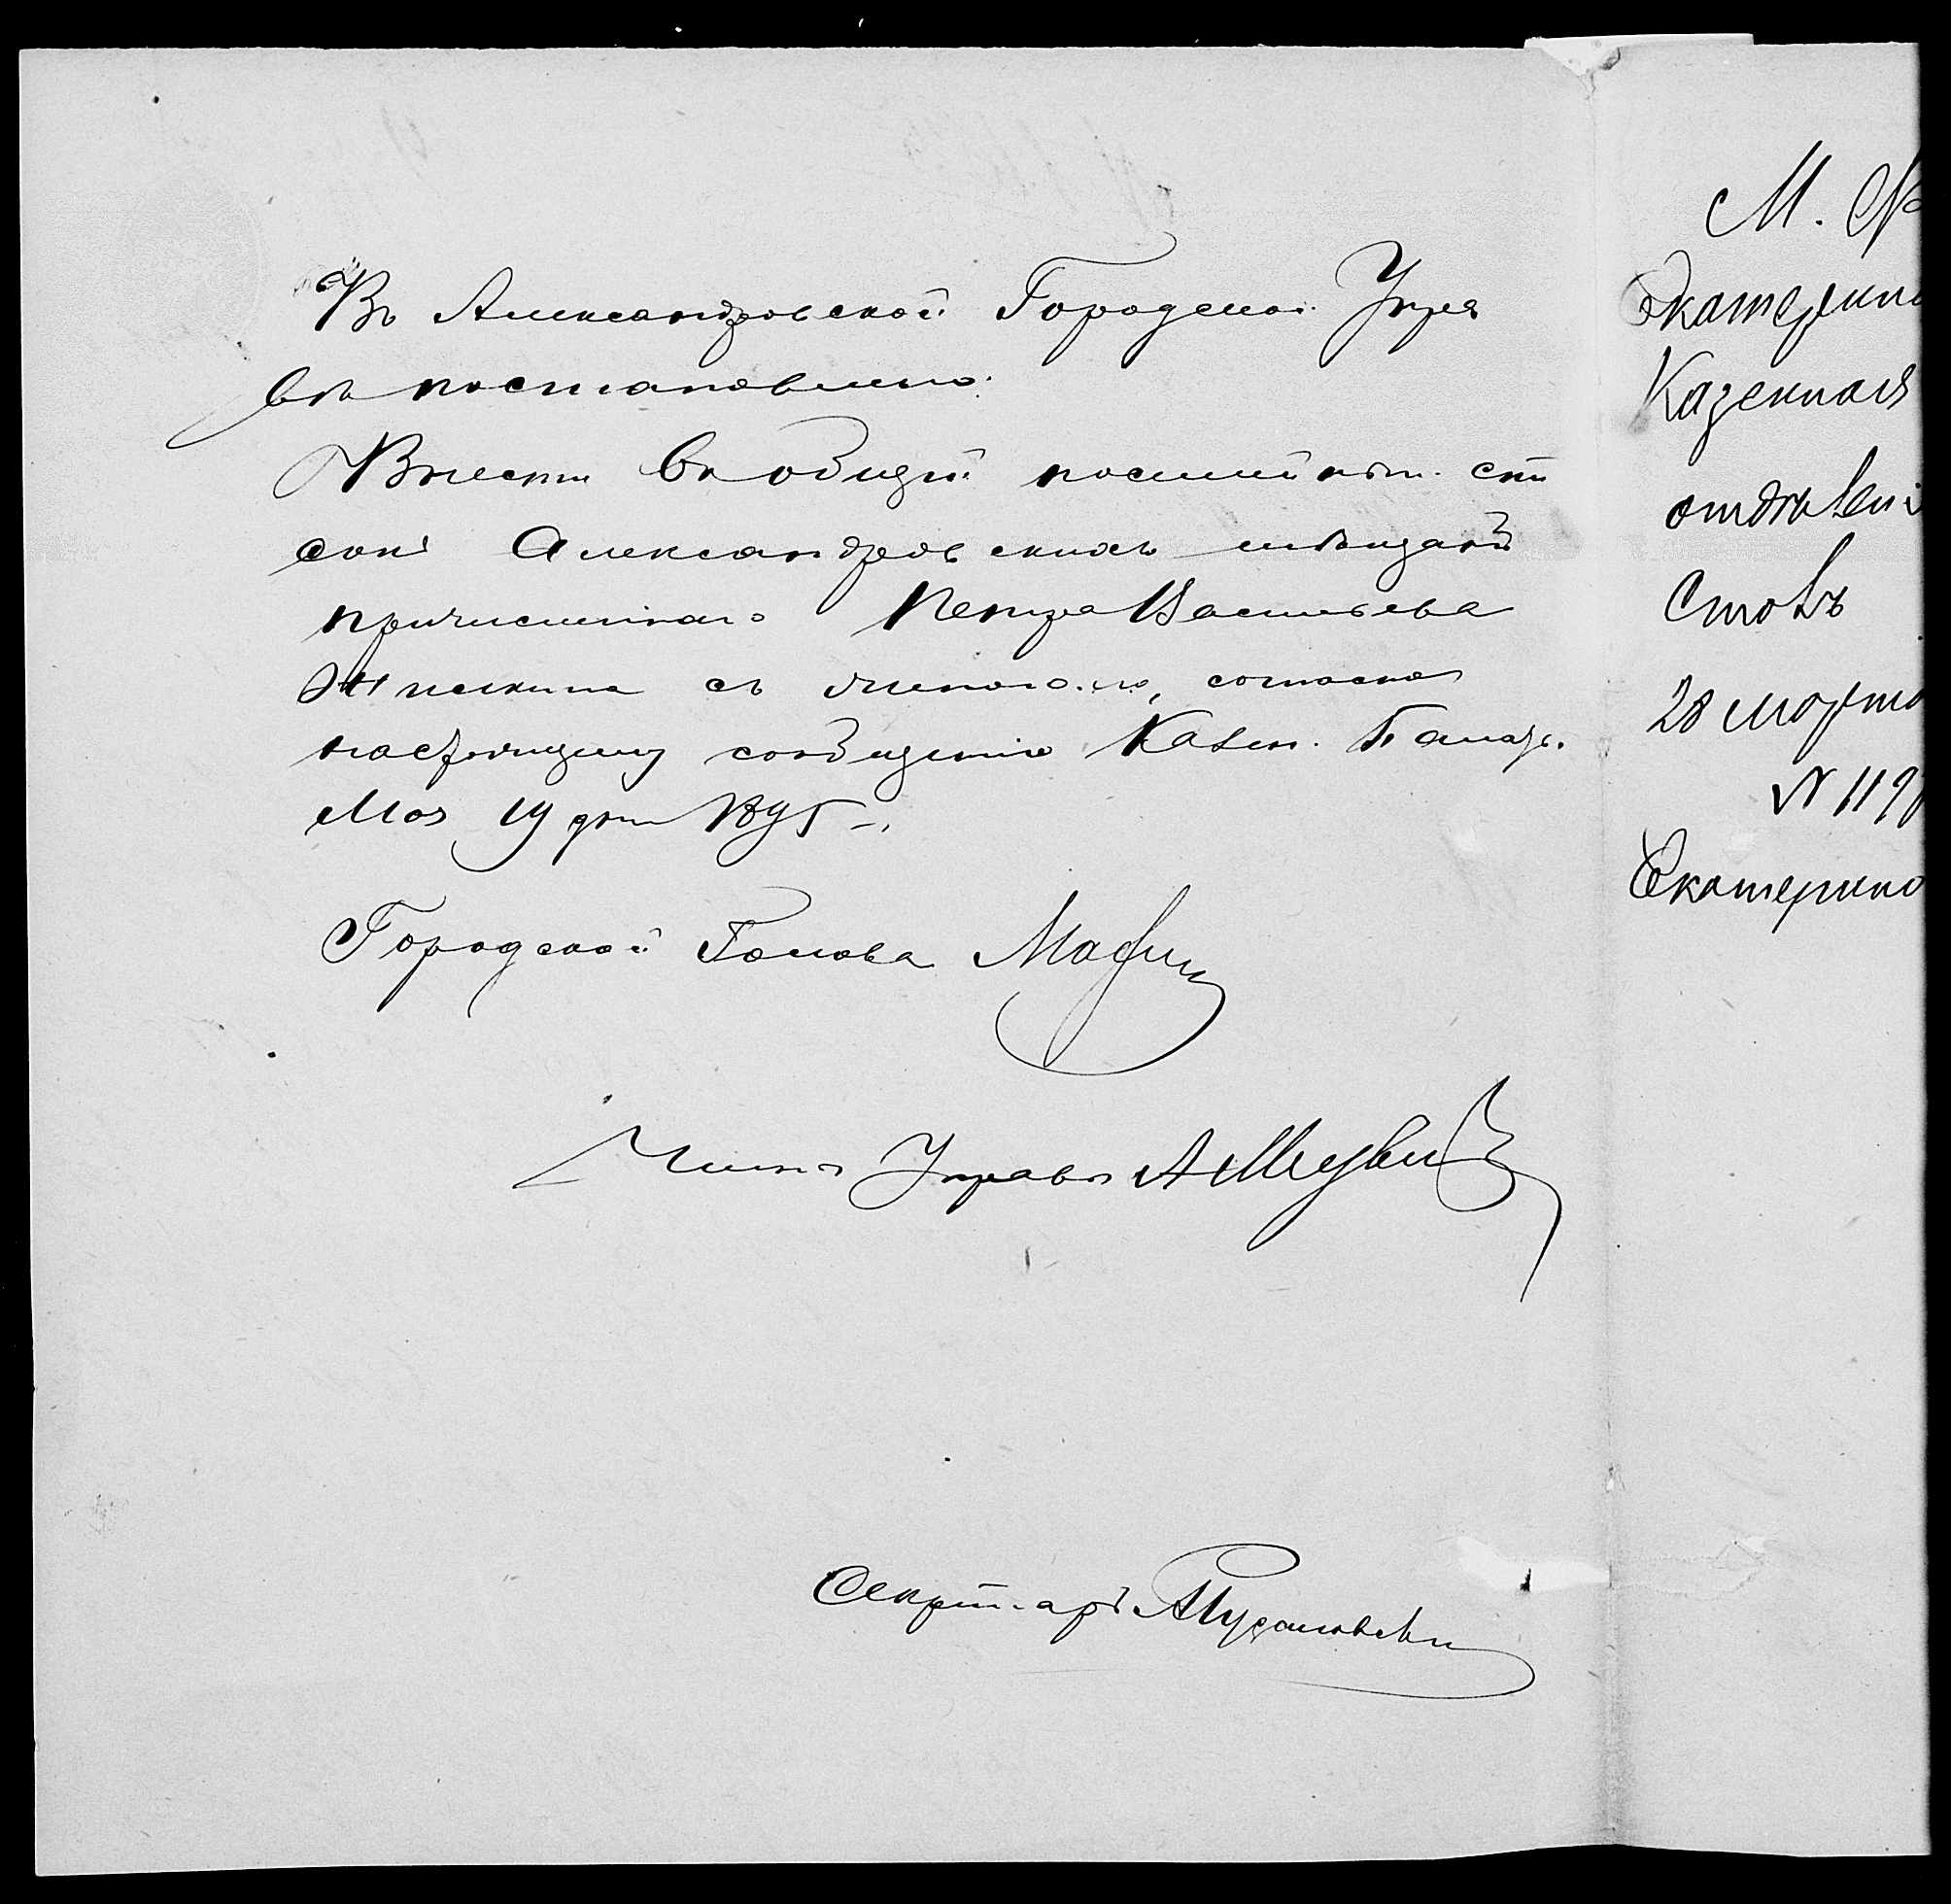 Въ Александровской Городской Упра
вѣ постановлено:
Внести въ общій посемейный спи
сокъ Александровскихъ мѣщанъ
причисленнаго Петра Васильева
съ согласно
настоящему сообщенію Казен. Палаты.
Мая 19 дня 1895 г.
Городской Голова
Членъ Управы
Секретарь
М. Ф
Екатерино
Казенная
отдѣлені
Столъ
28 марта
№ 119
Екатерино